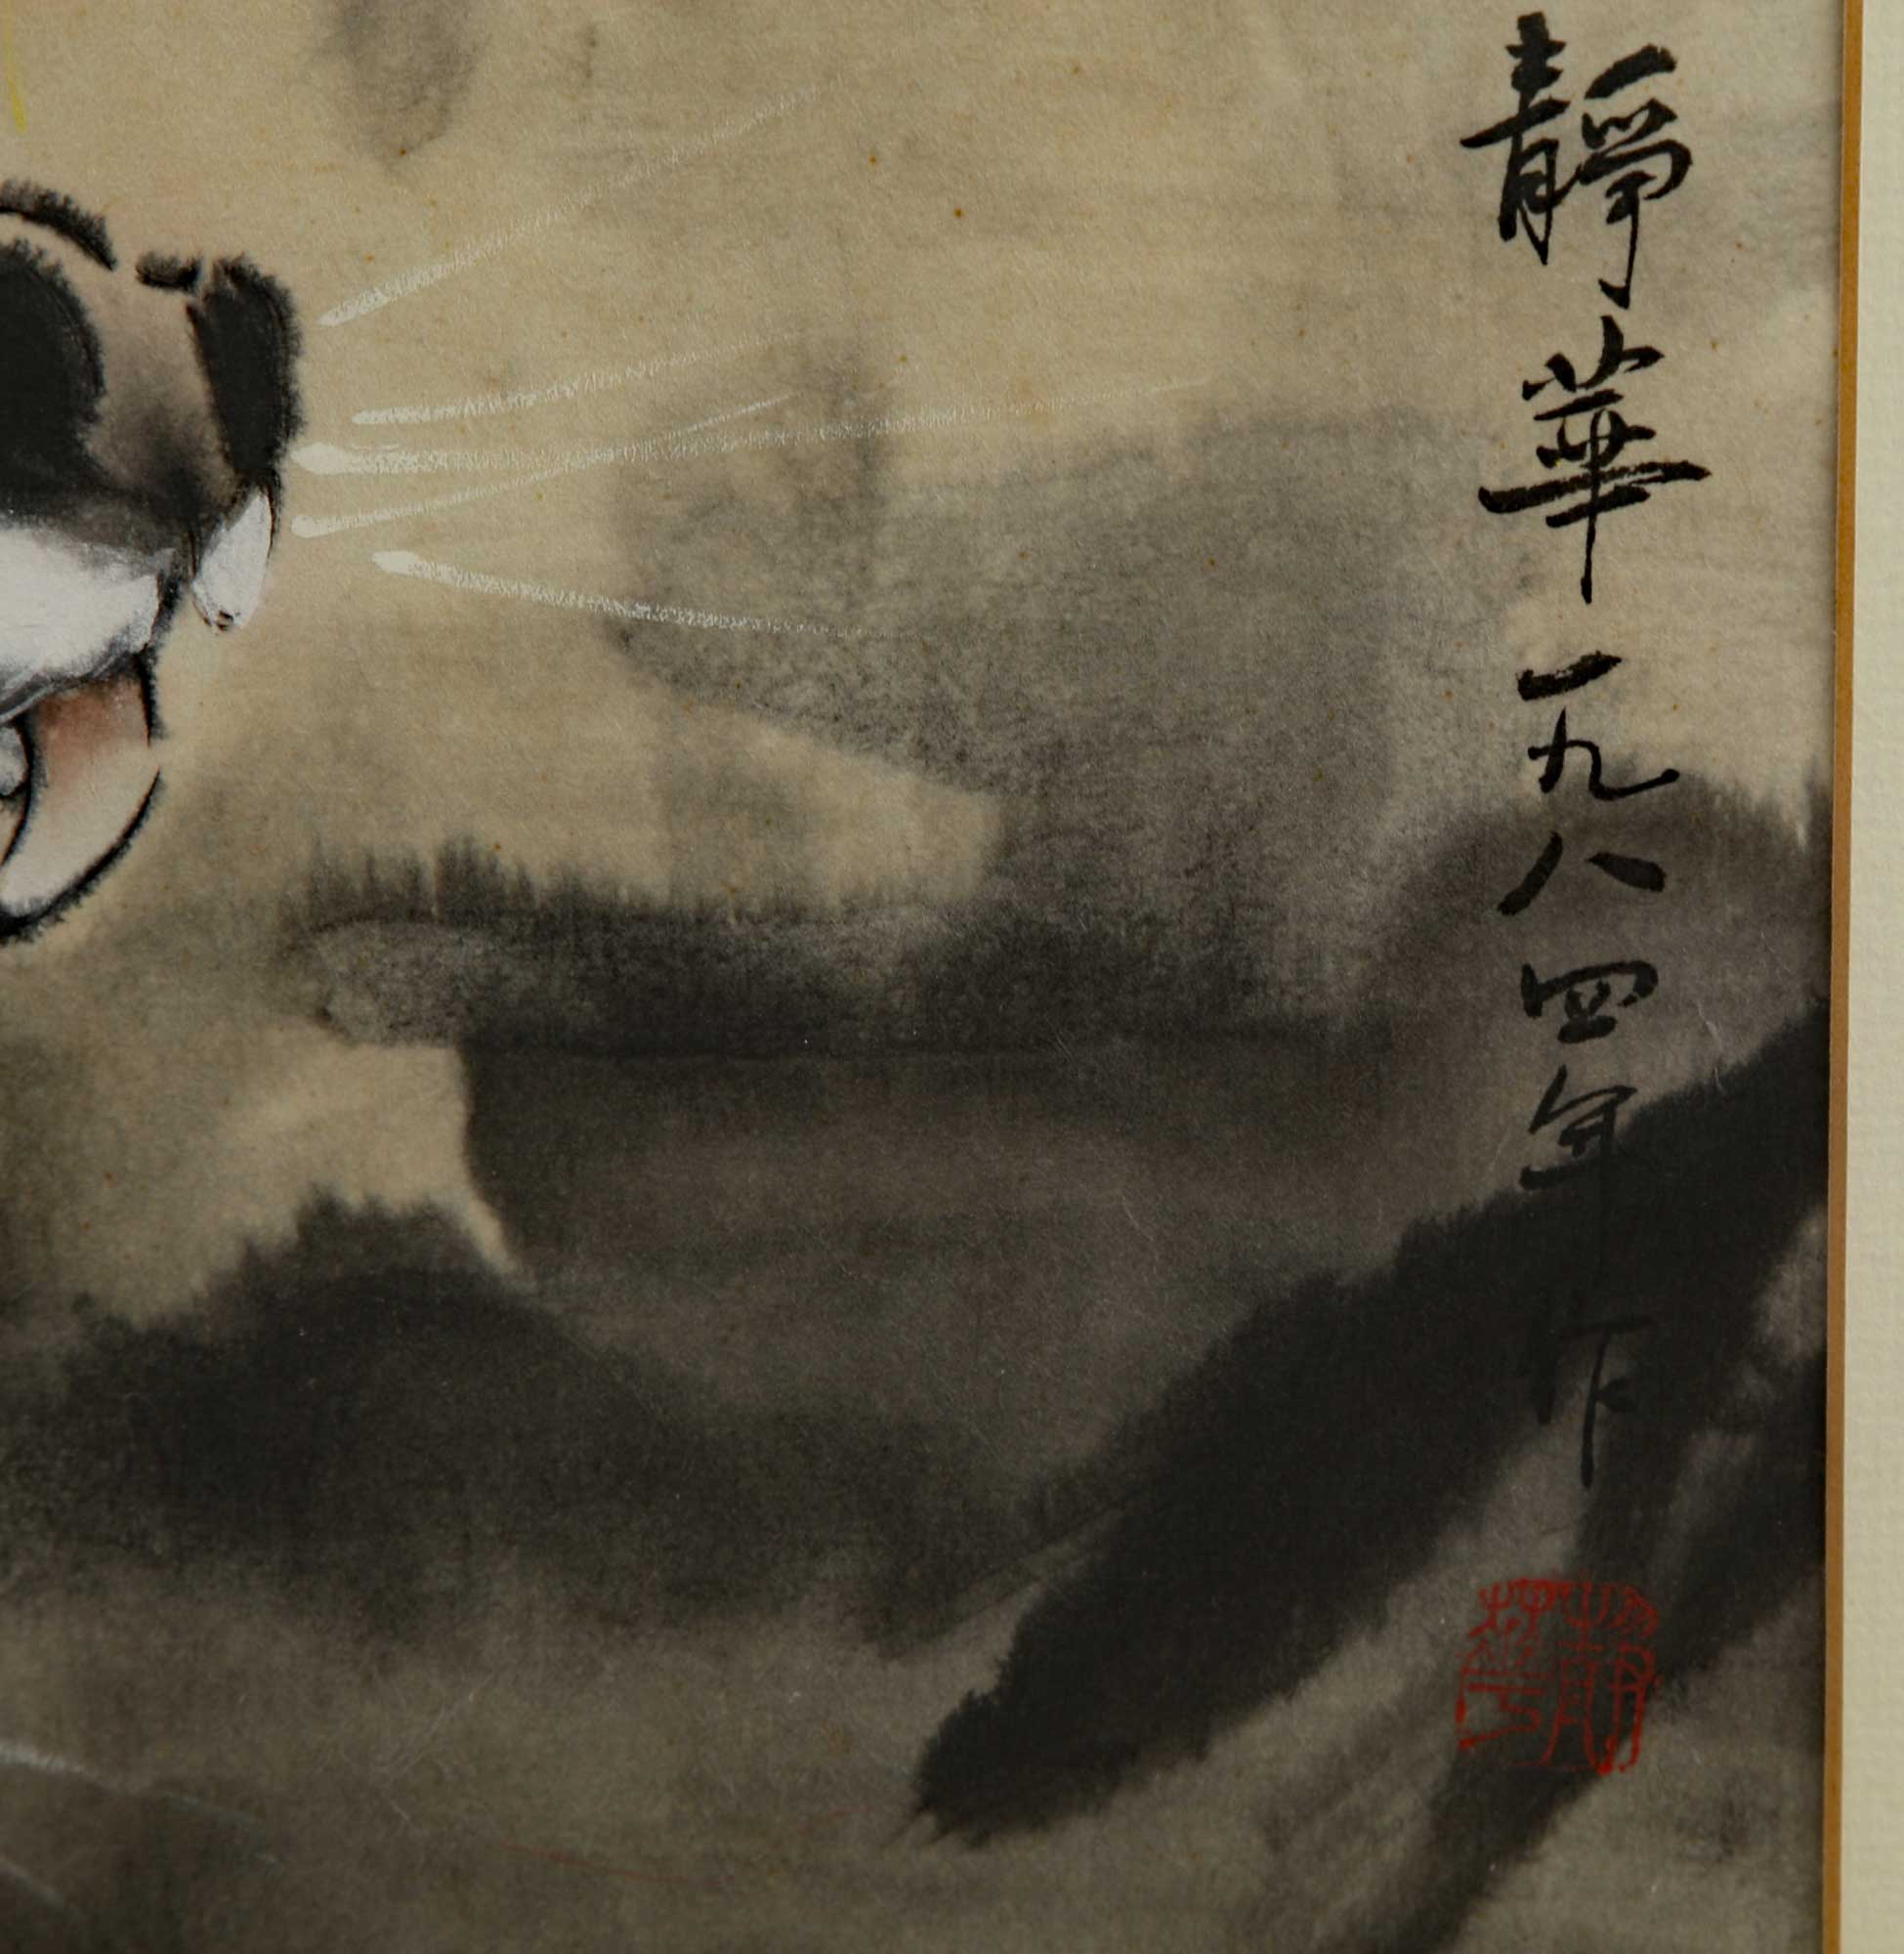 靜華一九八四年作